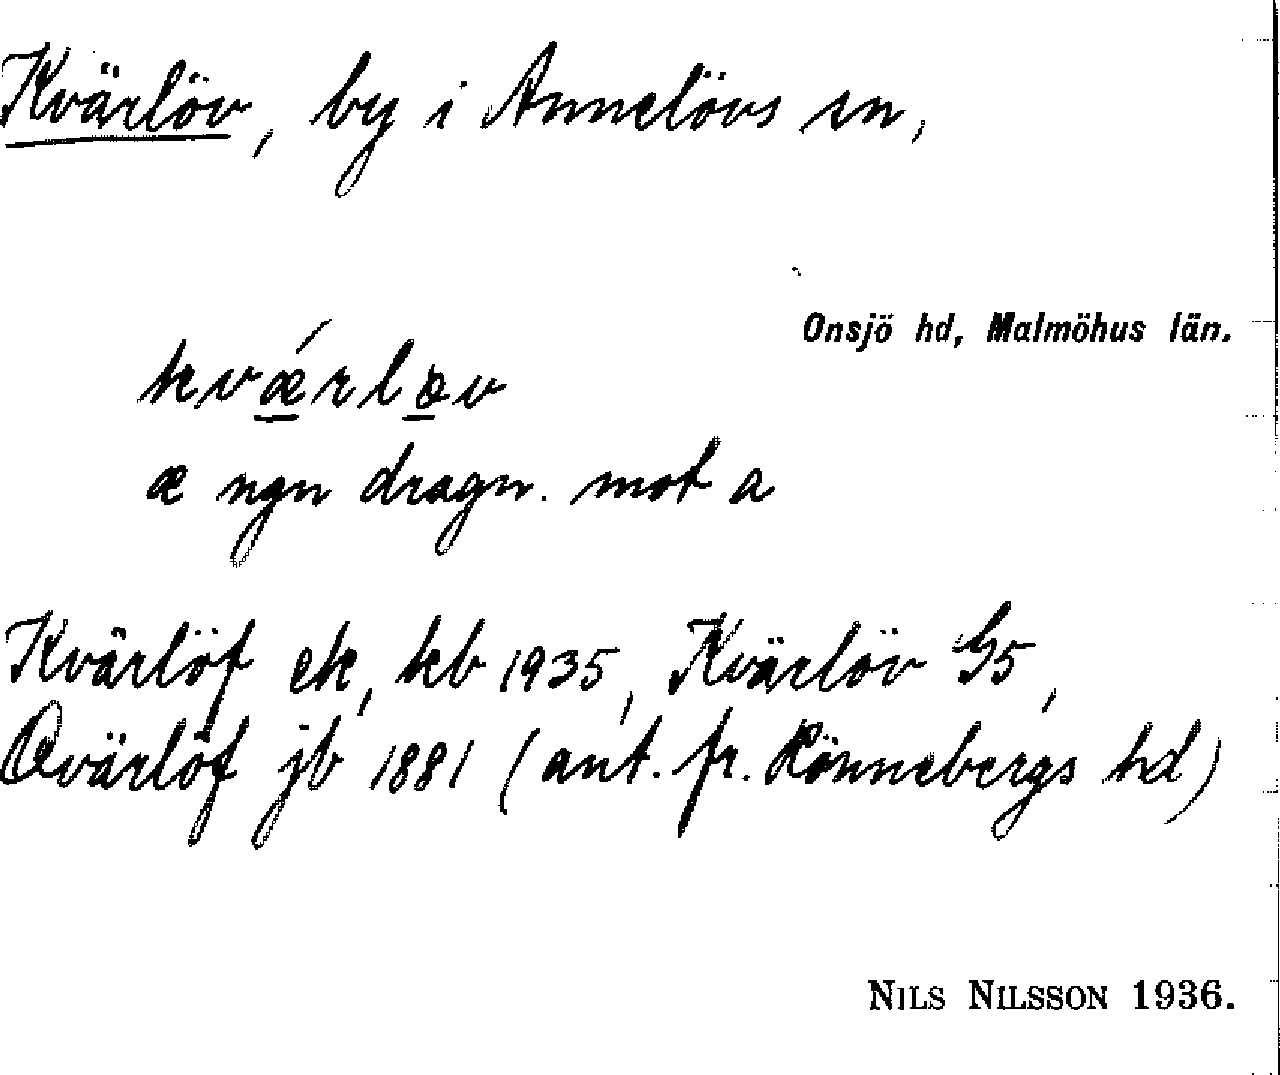 Kvärlöv, by i Annelövs sn,
Onsjö hd, Malmöhus län.
kvǽrləv
æ ngn dragn. mot a
Kvärlöf ek, kb 1935, Kvärlöv G5,
Qvärlöf jb 1881 (ant. fr. Rönnebergs hd)
NILS NILSSON 1936.